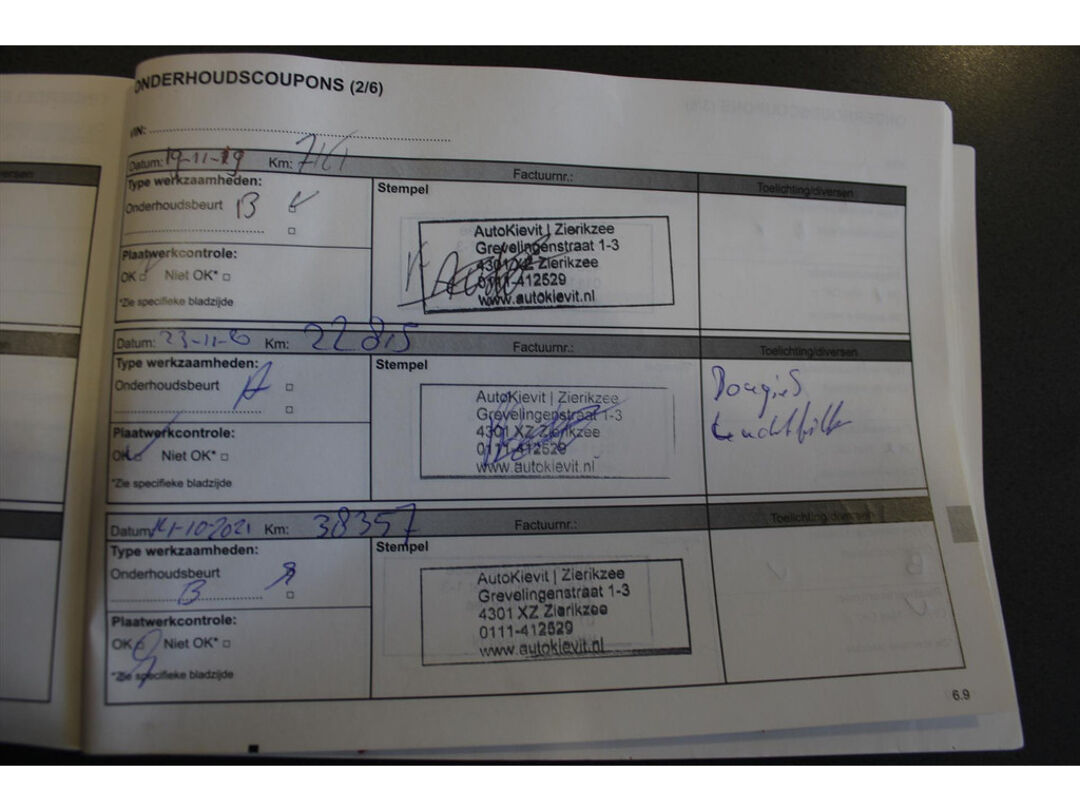 ONDERHOUDSCOUPONS (2/6)
VIN:
Datum: 19-11-19 Km: Factuurnr.: Toelichting/diversen
Type werkzaamheden: Stempel
Onderhoudsbeurt B
AutoKievit | Zierikzee
Grevelingenstraat 1-3
4301 XZ Zierikzee
0111-412529
www.autokievit.nl
Plaatwerkcontrole:
OK Niet OK*
*Zie specifieke bladzijde
Datum: 23-11- Km: 22815 Factuurnr.: Toelichting/diversen
Type werkzaamheden: Stempel
Onderhoudsbeurt A
Bougies
Luchtfilter
AutoKievit | Zierikzee
Grevelingenstraat 1-3
4301 XZ Zierikzee
0111-412529
www.autokievit.nl
Plaatwerkcontrole:
OK Niet OK*
*Zie specifieke bladzijde
Datum: 14-10-2021 Km: 38357 Factuurnr.: Toelichting/diversen
Type werkzaamheden: Stempel
Onderhoudsbeurt
B
AutoKievit | Zierikzee
Grevelingenstraat 1-3
4301 XZ Zierikzee
0111-412529
www.autokievit.nl
Plaatwerkcontrole:
OK Niet OK*
*Zie specifieke bladzijde
6.9